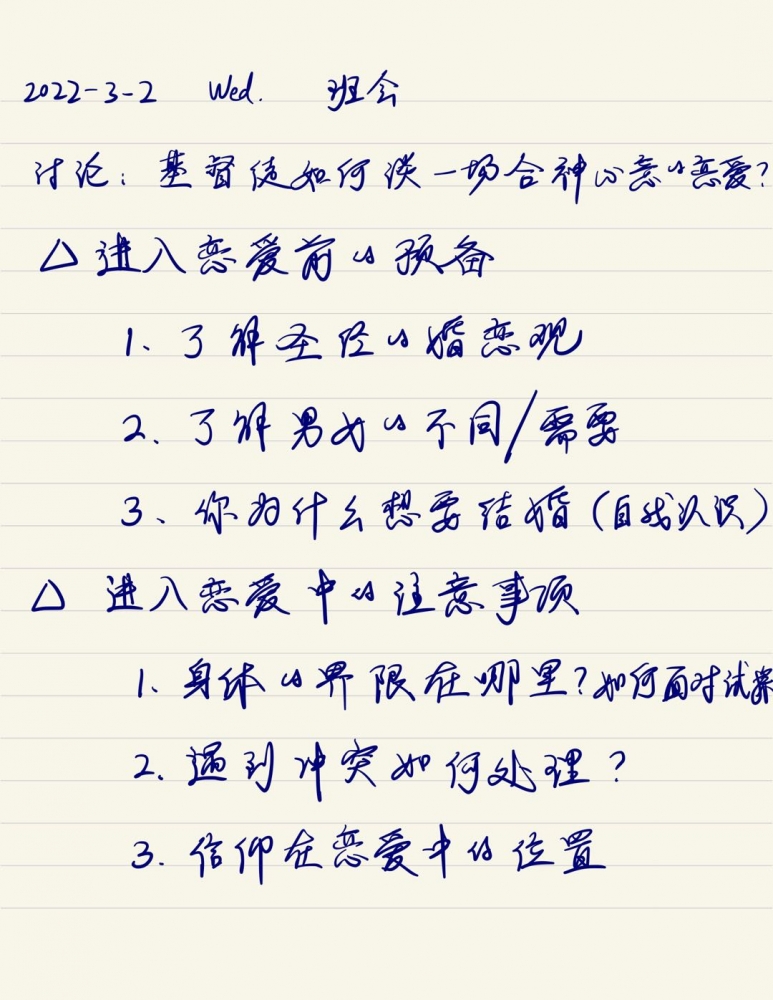 2022-3-2 Wed. 班会
讨论：基督徒如何谈一场合神心意的恋爱？
△ 进入恋爱前的预备
1、了解圣经的婚恋观
2、了解男女的不同/需要
3、你为什么想要结婚（自我认识）
△ 进入恋爱中的注意事项
1、身体的界限在哪里？如何面对试探
2、遇到冲突如何处理？
3. 信仰在恋爱中的位置